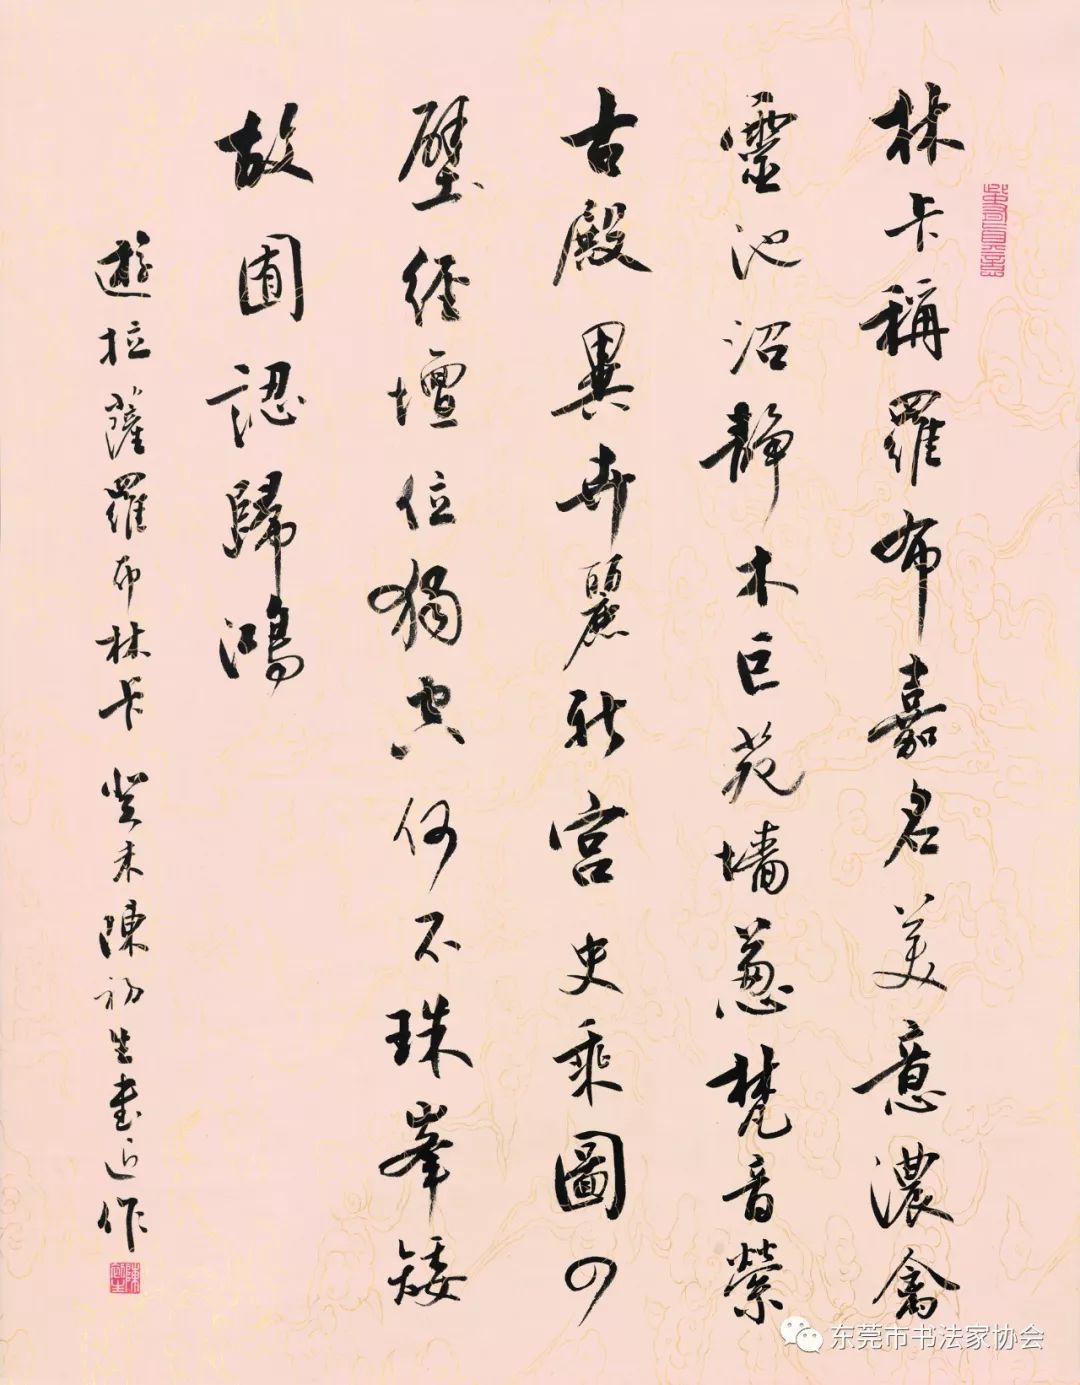 林卡稱羅布嘉名美意濃禽
靈池沼靜木巨苑墻蔥梵音縈
古殿異卉麗新宮史乘圖四
壁經壇位獨空何不珠峯矮
故圃認歸鴻
遊拉薩羅布林卡 癸未陳初生書近作
陳初生
东莞市书法家协会